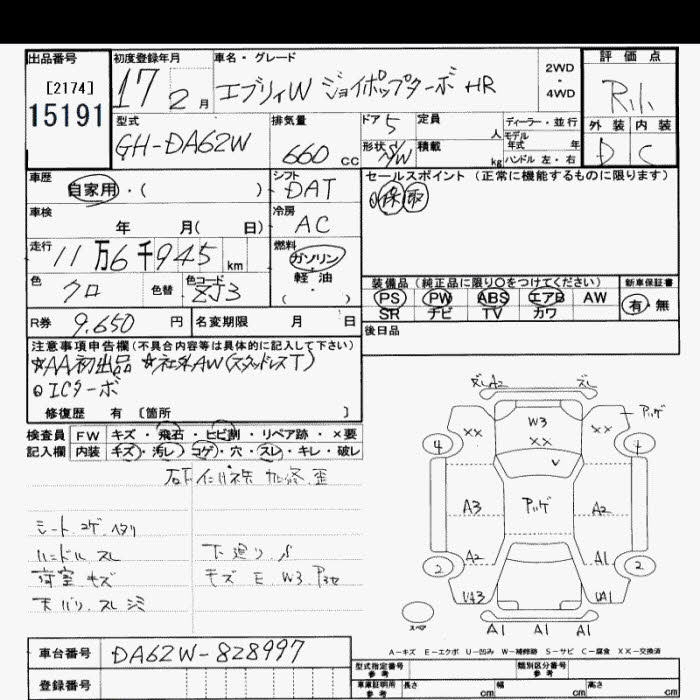 出品番号 初度登録年月 車名・グレード 2WD・4WD 評価点
[2174] 15191 17 2月 エブリィW ジョイポップターボ HR
外装 内装
D C
型式 排気量 ドア 定員 人 ディーラー・並行
GH-DA62W 660cc 5 モデル年式 年
形状 積載 kg ハンドル 左・右
車歴 シフト セールスポイント (正常に機能するものに限ります)
自家用・( ) DAT
車検 冷房
年 月( 日) AC
走行 燃料
11万6千945km ガソリン・軽油( )
色 色替 色コード
クロ ZJ3
装備品(純正品に限り○をつけてください) 新車保証書
PS PW ABS エアB AW 有・無
SR ナビ TV カワ
R券 9.650円 名変期限 月 日 後日品
注意事項申告欄(不具合内容等は具体的に記入して下さい)
☆AA初出品 ☆社外AW(スタッドレスT)
ICターボ
修復歴 有 [箇所 ]
検査員 FW キズ・飛石・ヒビ割・リペア跡・×要
記入欄 内装 キズ・汚レ・コゲ・穴・スレ・キレ・破レ
シート コゲ ヘタリ
ハンドル スレ 下廻り
荷室 キズ キズ E W3
天バリ スレ
ズレ A2 ズレ
W3
XX XX XX
4 4
A3 A2
A2 A1
2 2
スペア
A1 A1 A1
A-キズ E-エクボ U-凹み W-補修跡 S-サビ C-腐食 XX-交換済
車台番号 DA62W-828997
登録番号
型式指定番号 参考 類別区分番号 参考
車庫証明所 参考 長さ cm 幅 cm 高さ cm